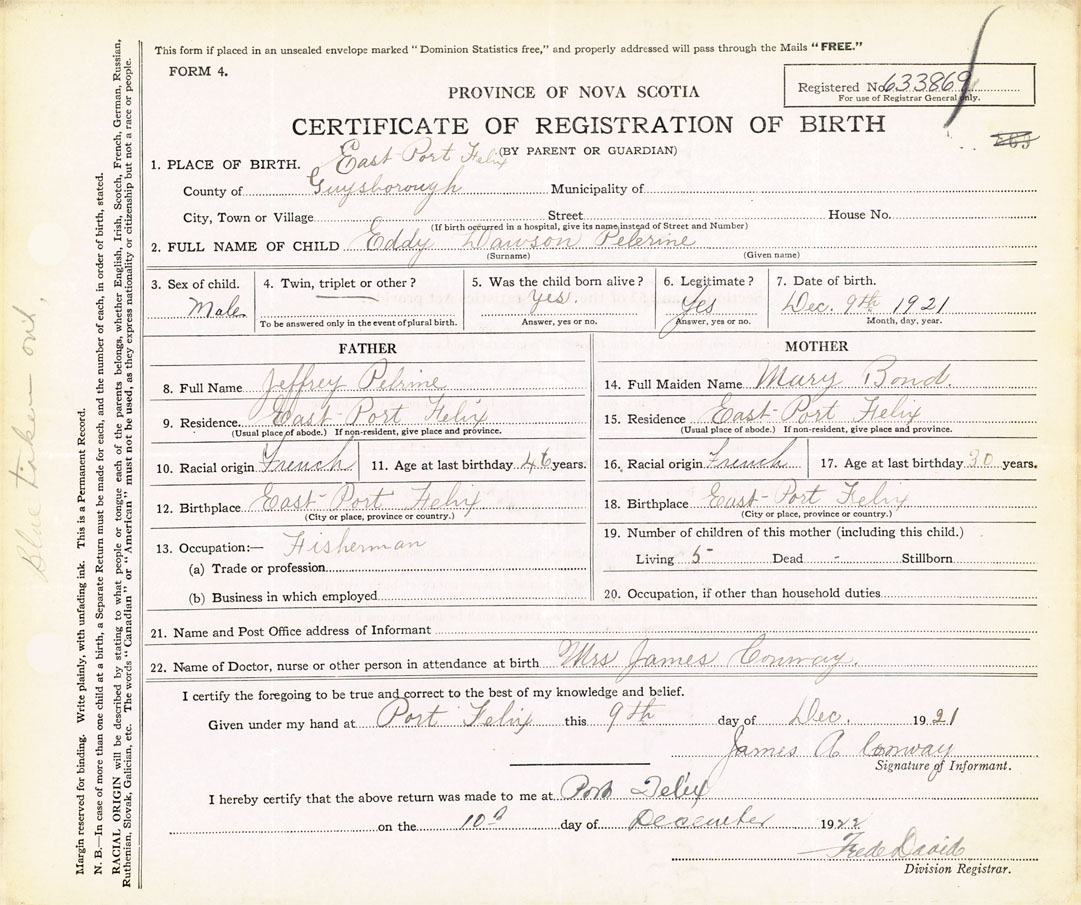 This form if placed in an unsealed envelope marked "Dominion Statistics free," and properly addressed will pass through the Mails "FREE."
FORM 4.
Registered No. 633869
For use of Registrar General only.
PROVINCE OF NOVA SCOTIA
CERTIFICATE OF REGISTRATION OF BIRTH
(BY PARENT OR GUARDIAN)
1. PLACE OF BIRTH. East Port Felix
County of Guysborough Municipality of
City, Town or Village Street House No.
(If birth occurred in a hospital, give its name instead of Street and Number)
2. FULL NAME OF CHILD Eddy Dawson Pelerine
(Surname) (Given name)
3. Sex of child. Male
4. Twin, triplet or other?
To be answered only in the event of plural birth.
5. Was the child born alive? yes.
Answer, yes or no.
6. Legitimate? Yes
Answer, yes or no.
7. Date of birth. Dec. 9th 1921
Month, day, year.
FATHER
8. Full Name Jeffrey Pelrine
9. Residence. East Port Felix
(Usual place of abode.) If non-resident, give place and province.
10. Racial origin French 11. Age at last birthday 46 years.
12. Birthplace East-Port Felix
(City or place, province or country.)
13. Occupation:— Fisherman
(a) Trade or profession
(b) Business in which employed
MOTHER
14. Full Maiden Name Mary Bond.
15. Residence East-Port Felix
(Usual place of abode.) If non-resident, give place and province.
16. Racial origin French 17. Age at last birthday 30 years.
18. Birthplace East-Port Felix
(City or place, province or country.)
19. Number of children of this mother (including this child.)
Living 5 Dead - Stillborn
20. Occupation, if other than household duties
21. Name and Post Office address of Informant
22. Name of Doctor, nurse or other person in attendance at birth Mrs James Conway.
I certify the foregoing to be true and correct to the best of my knowledge and belief.
Given under my hand at Port Felix this 9th day of Dec. 1921
James A Conway
Signature of Informant.
I hereby certify that the above return was made to me at Port Felix
on the 10th day of December 192
Fred David
Division Registrar.
Margin reserved for binding. Write plainly, with unfading ink. This is a Permanent Record.
N. B.—In case of more than one child at a birth, a Separate Return must be made for each, and the number of each, in order of birth, stated.
RACIAL ORIGIN will be described by stating to what people or tongue each of the parents belongs, whether English, Irish, Scotch, French, German, Russian,
Ruthenian, Slovak, Galician, etc. The words "Canadian" or "American" must not be used, as they express nationality or citizenship but not a race or people.
Blue taken out,